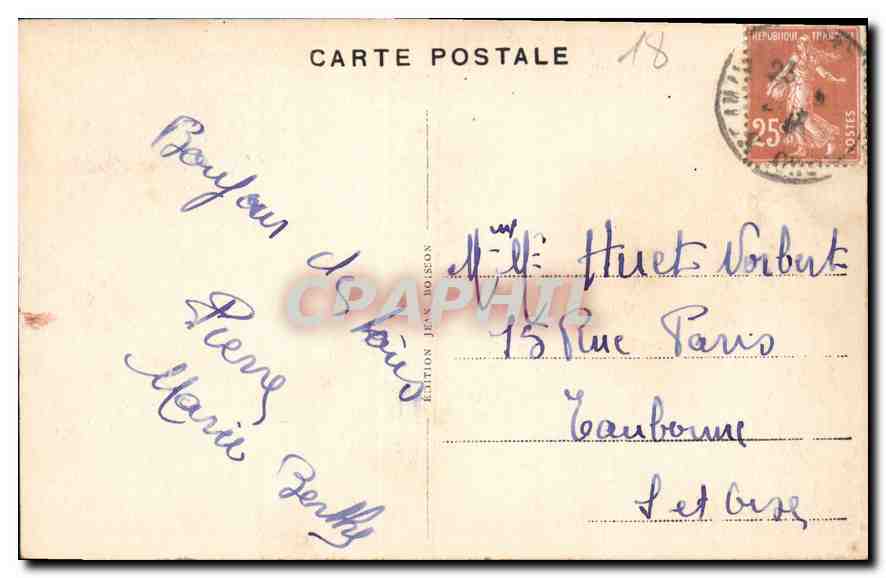 CARTE POSTALE
18
REPUBLIQUE FRANÇAISE
25c
POSTES
Bonjour de Nous
Pierre
Marie Berthe
EDITION JEAN BOISSON
CPAPHIL
Mr Me Huet Norbert
15 Rue Paris
Eaubonne
S et Oise